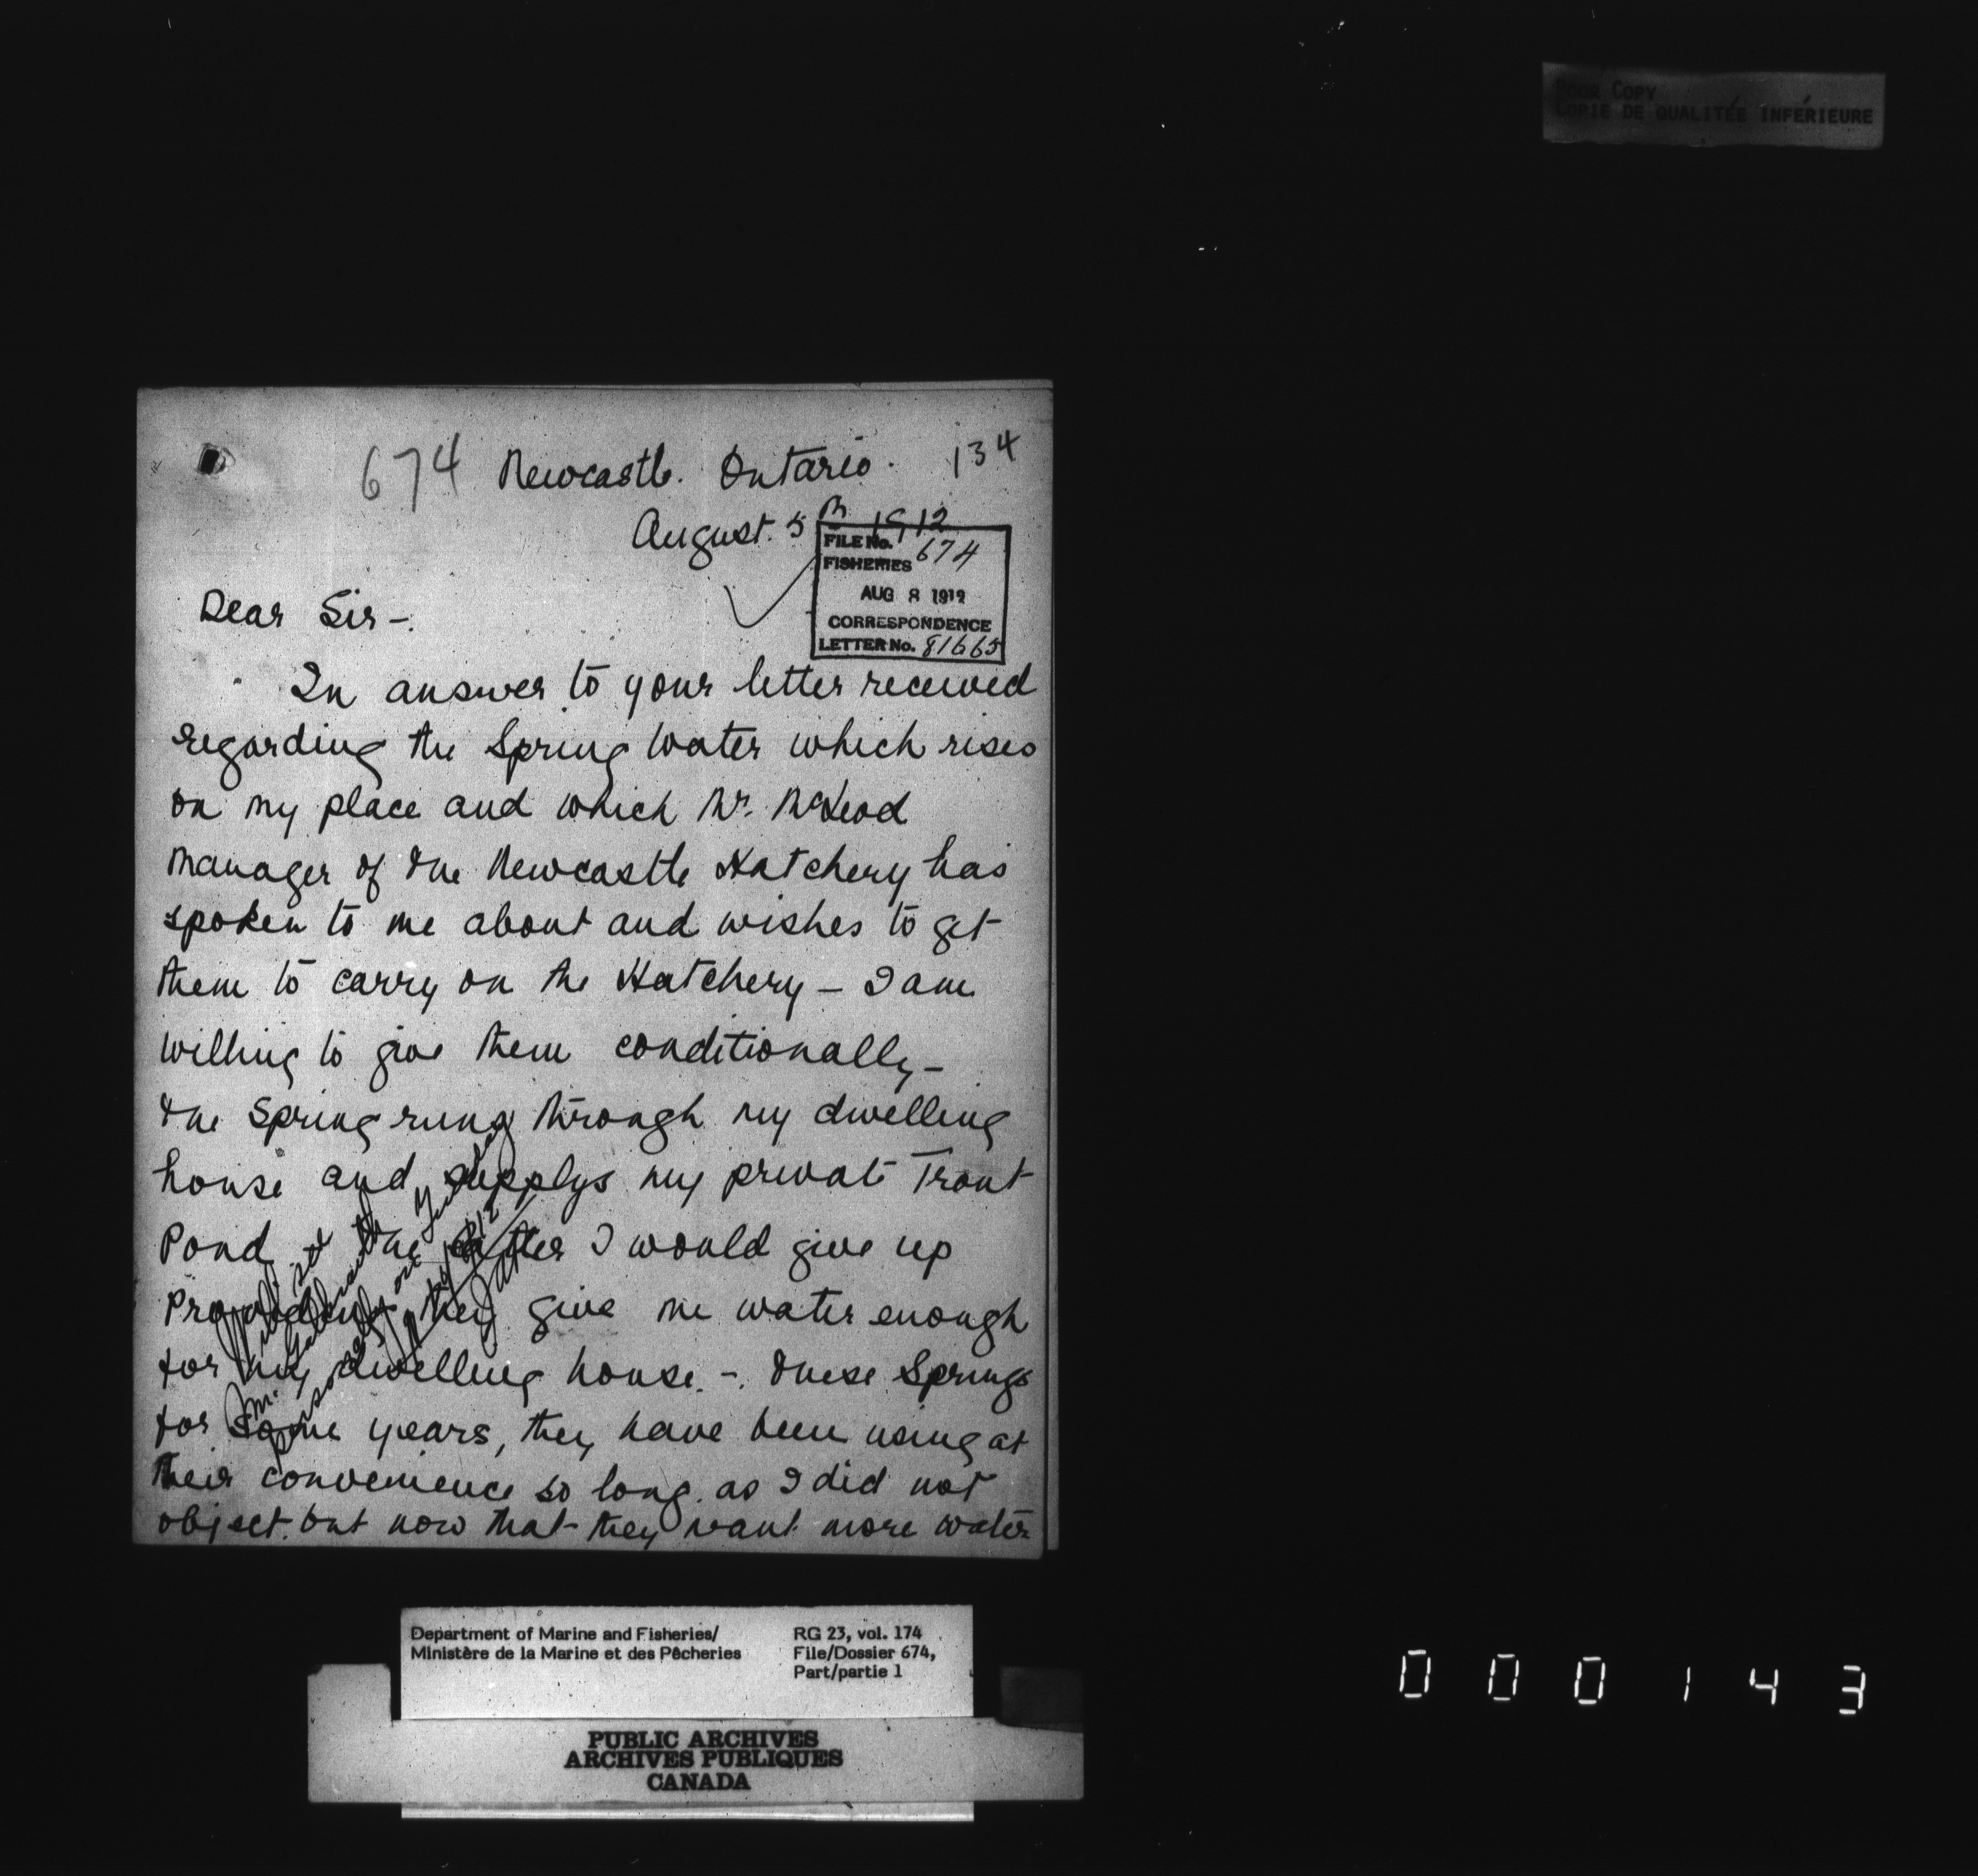 Poor Copy
COPIE DE QUALITÉE INFÉRIEURE
674 Newcastle. Ontario. 134
August. 5th 1912
FILE No. 674
FISHERIES
AUG 8 1912
CORRESPONDENCE
LETTER No. 81665
Dear Sir-.
In answer to your letter received
regarding the Spring Water which rises
on my place and which Mr. McLeod
Manager of the Newcastle Hatchery has
spoken to me about and wishes to get
them to carry on the Hatchery - I am
willing to give them conditionally -
The Spring runs through my dwelling
house and supplys my private Trout
Pond, the latter I would give up
Providing they give me water enough
for my dwelling house. -. These Springs
for some years, they have been using at
their convenience so long. as I did not
object. but now that they want more water
Department of Marine and Fisheries/
Ministère de la Marine et des Pêcheries
RG 23, vol. 174
File/Dossier 674,
Part/partie 1
PUBLIC ARCHIVES
ARCHIVES PUBLIQUES
CANADA
000143